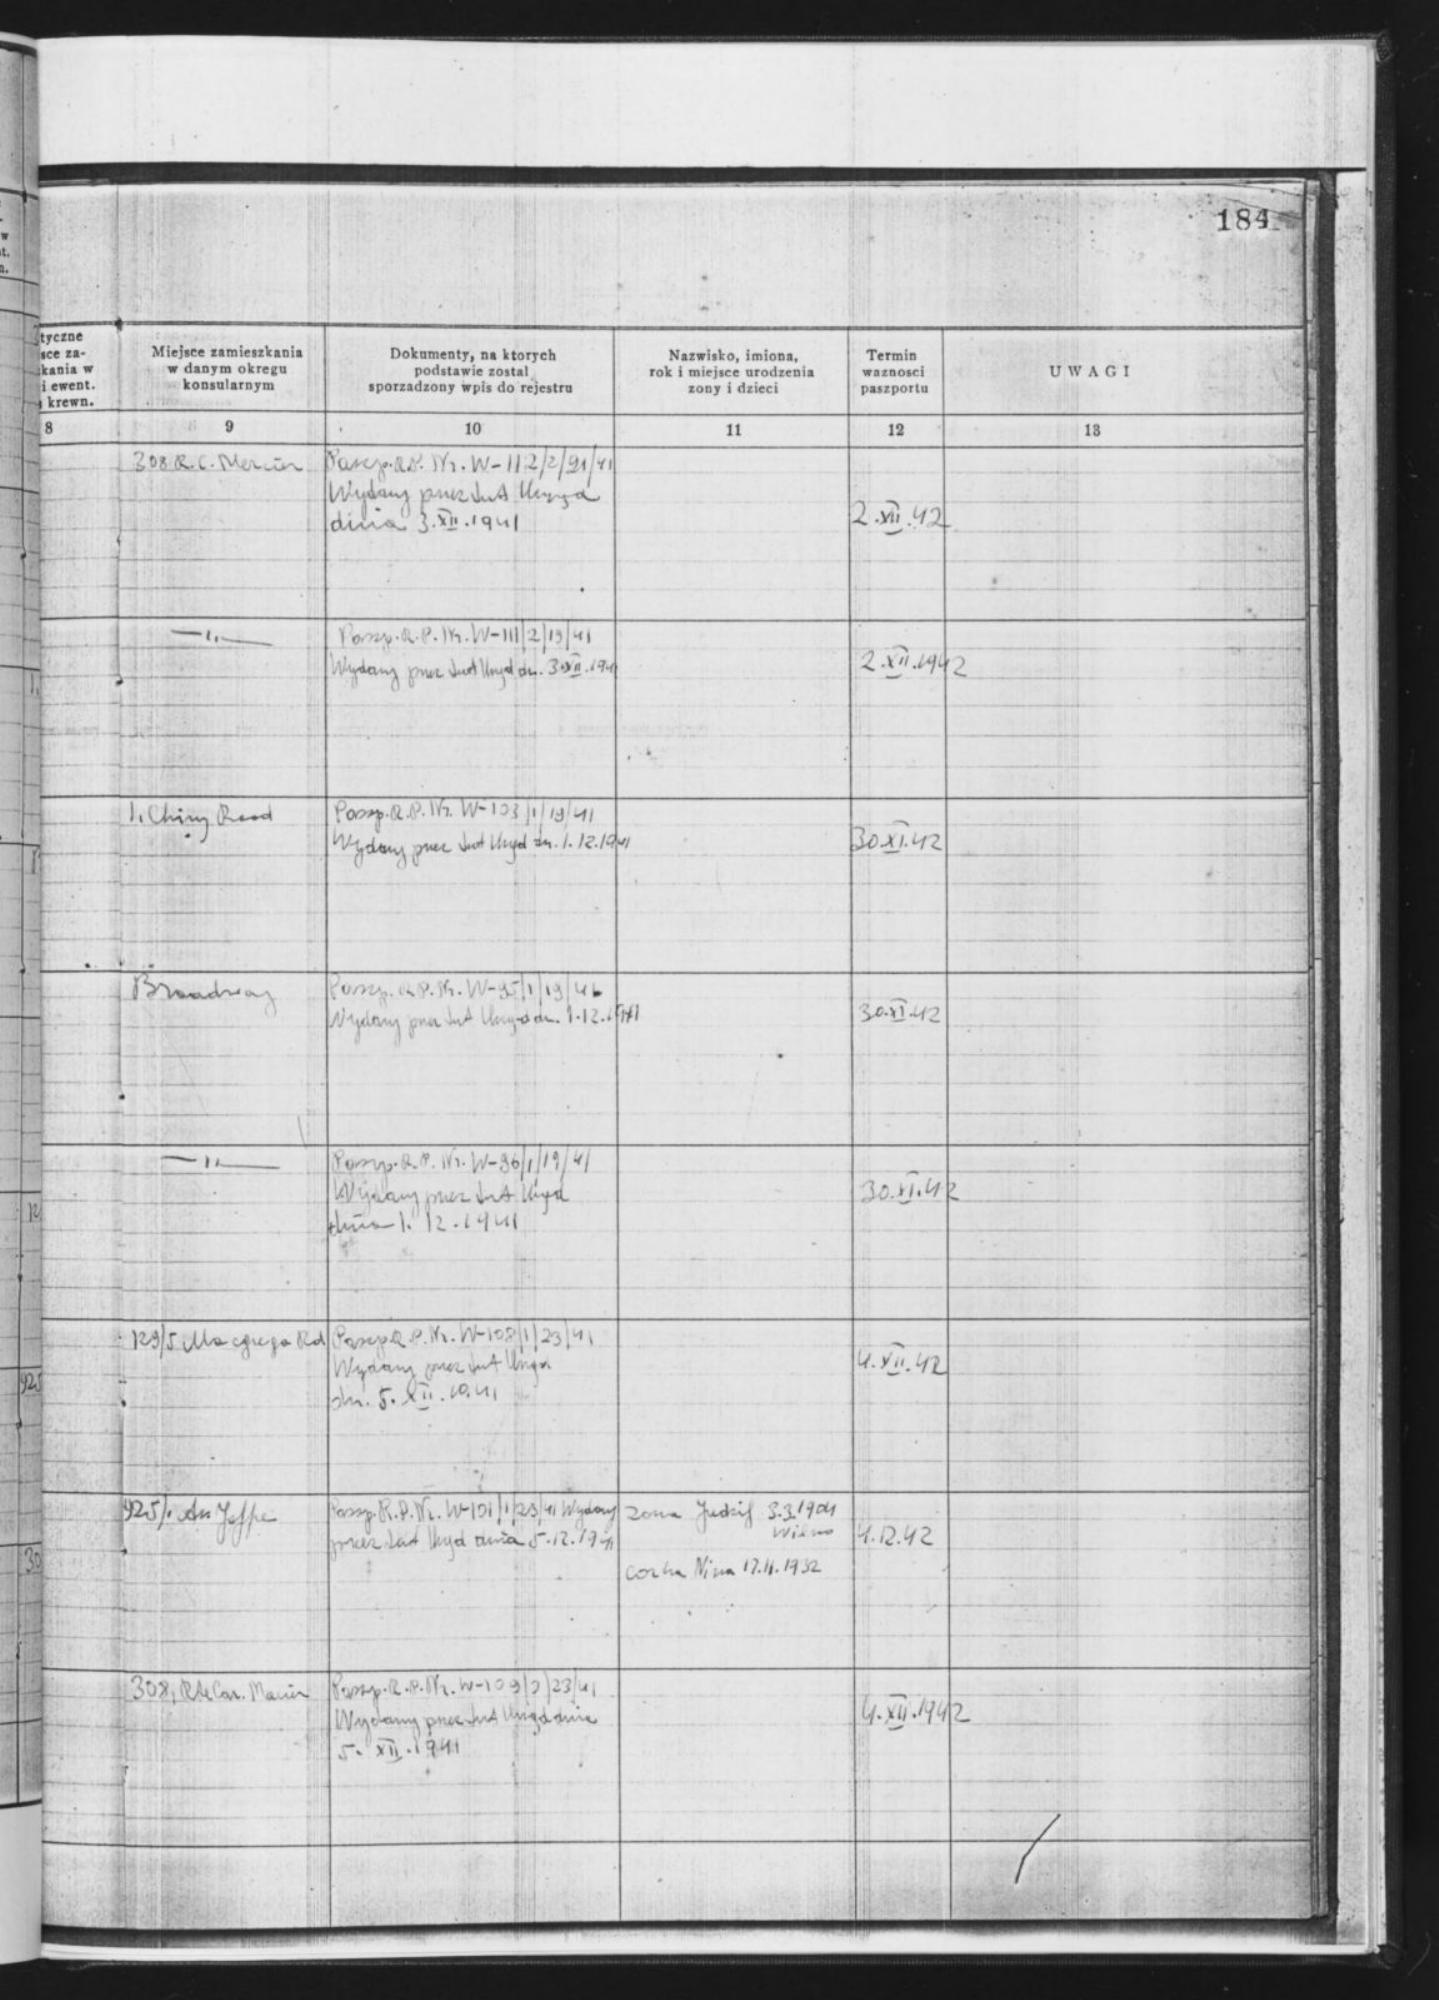 184
tyczne
sce za-
kania w
i ewent.
krewn.
Miejsce zamieszkania
w danym okregu
konsularnym
Dokumenty, na ktorych
podstawie zostal
sporzadzony wpis do rejestru
Nazwisko, imiona,
rok i miejsce urodzenia
zony i dzieci
Termin
waznosci
paszportu
UWAGI
8
9
10
11
12
13
308 R. C. Mercier
Paszp. R.P. Nr. W-112/2/91/41
Wydany przez tut Urząd
dnia 3.XII.1941
2.XII.42
—"—
Paszp. R.P. Nr. W-111/2/19/41
Wydany przez tut Urząd dn. 3.XII.1941
2.XII.1942
Road
Paszp. R.P. Nr. W-103/1/19/41
Wydany przez tut Urząd dn. 1.12.1941
30.XI.42
Broadway
Paszp. R.P. Nr. W-95/1/19/41
Wydany przez tut Urząd dn. 1.12.1941
30.XI.42
—"—
Paszp. R.P. Nr. W-96/1/19/41
Wydany przez tut Urząd
dnia 1.12.1941
30.XI.42
129/5 Rd
Paszp. R.P. Nr. W-108/1/23/41
Wydany przez tut Urząd
dn. 5.XII.1941
4.XII.42
925/1 Av Joffre
Paszp. R.P. Nr. W-101/1/23/41 Wydany
przez tut Urząd dnia 5.12.1941
zona 3.3.1904
Wilno
corka Nina 17.11.1932
4.12.42
308, Rte Car. Mercier
Paszp. R.P. Nr. W-109/2/23/41
Wydany przez tut Urząd dnia
5.XII.1941
4.XII.1942